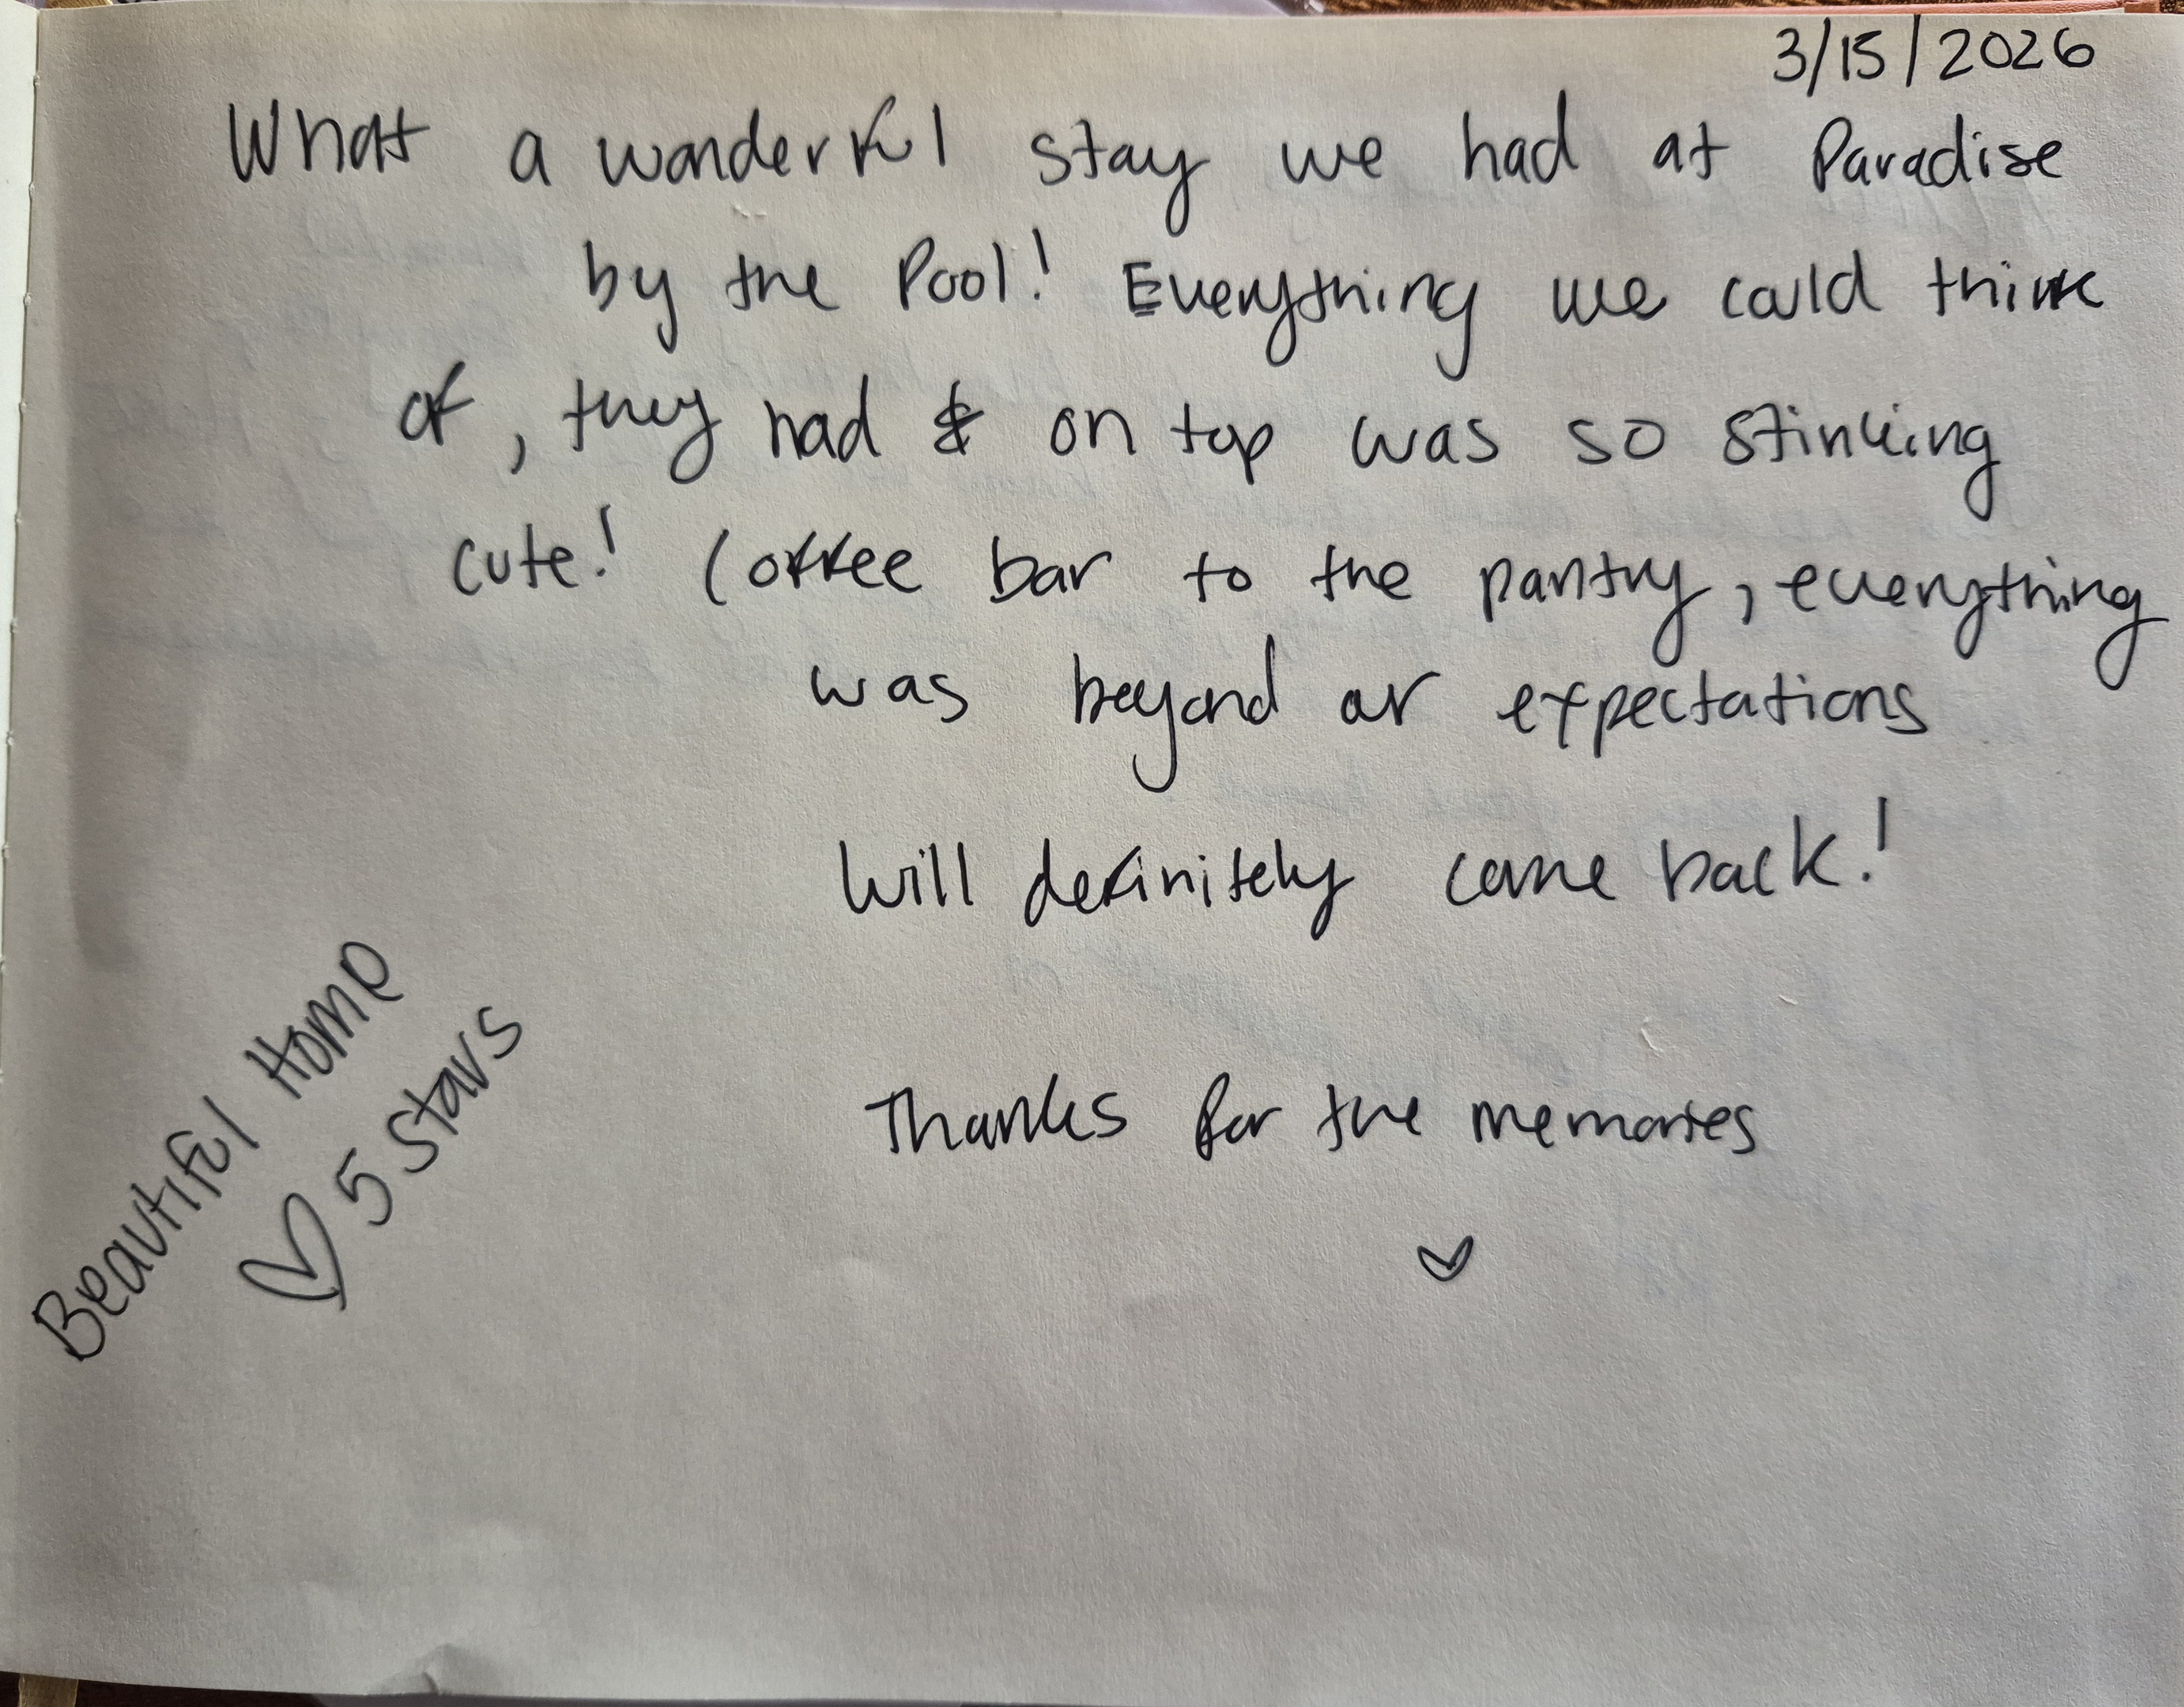 3/15/2026
What a wonderful stay we had at Paradise
by the Pool! Everything we could think
of, they had & on top was so stinking
cute! Coffee bar to the pantry, everything
was beyond our expectations
Will definitely come back!
Thanks for the memories
♡
Beautiful Home
♡ 5 stars